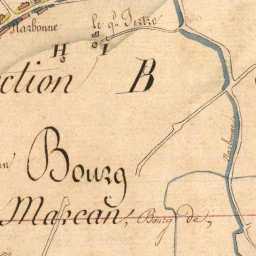 Narbonne
le g.d Tertre
H I
ction B
Bourg
Marcan, Bourg de,